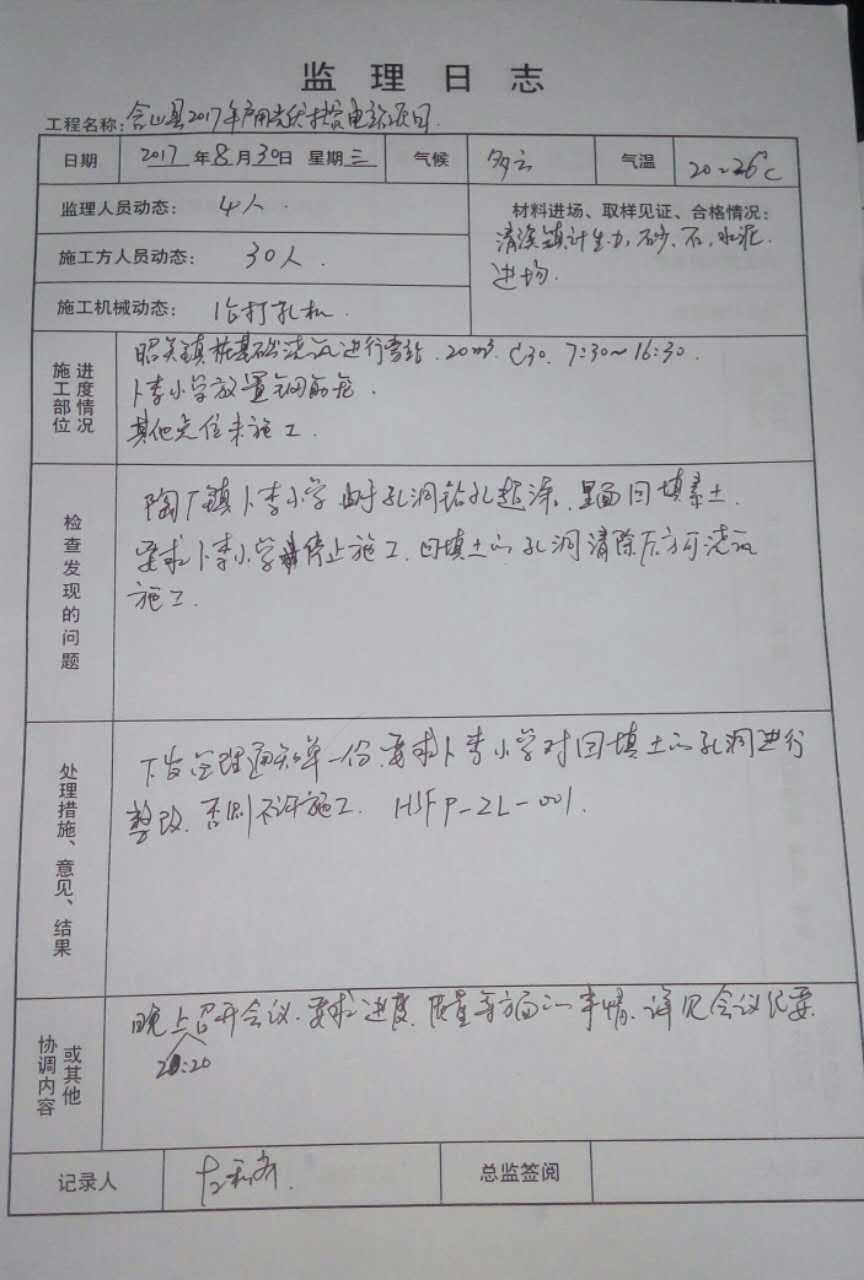 监理日志
工程名称：含山县2017年户用光伏扶贫电站项目.
日期 2017年8月30日 星期三 气候 多云 气温 20~26℃
监理人员动态： 4人.
材料进场、取样见证、合格情况：
清溪镇计生办,砂、石,水泥.
进场.
施工方人员动态： 30人.
施工机械动态： 1台打孔机.
施工部位 进度情况
昭关镇桩基础浇筑进行旁站.20m³.C30.7:30~16:30.
卜李小学放置钢筋笼.
其他点位未施工.
检查发现的问题
陶厂镇卜李小学由于孔洞钻孔超深,里面回填素土.
要求卜李小学停止施工.回填土的孔洞清除后方可浇筑
施工.
处理措施、意见、结果
下发监理通知单一份.要求卜李小学对回填土的孔洞进行
整改.否则不许施工. HSFP-ZL-001.
协调内容 或其他
晚上召开会议.要求进度.质量等方面的事情.详见会议纪要.
20:20
记录人
总监签阅